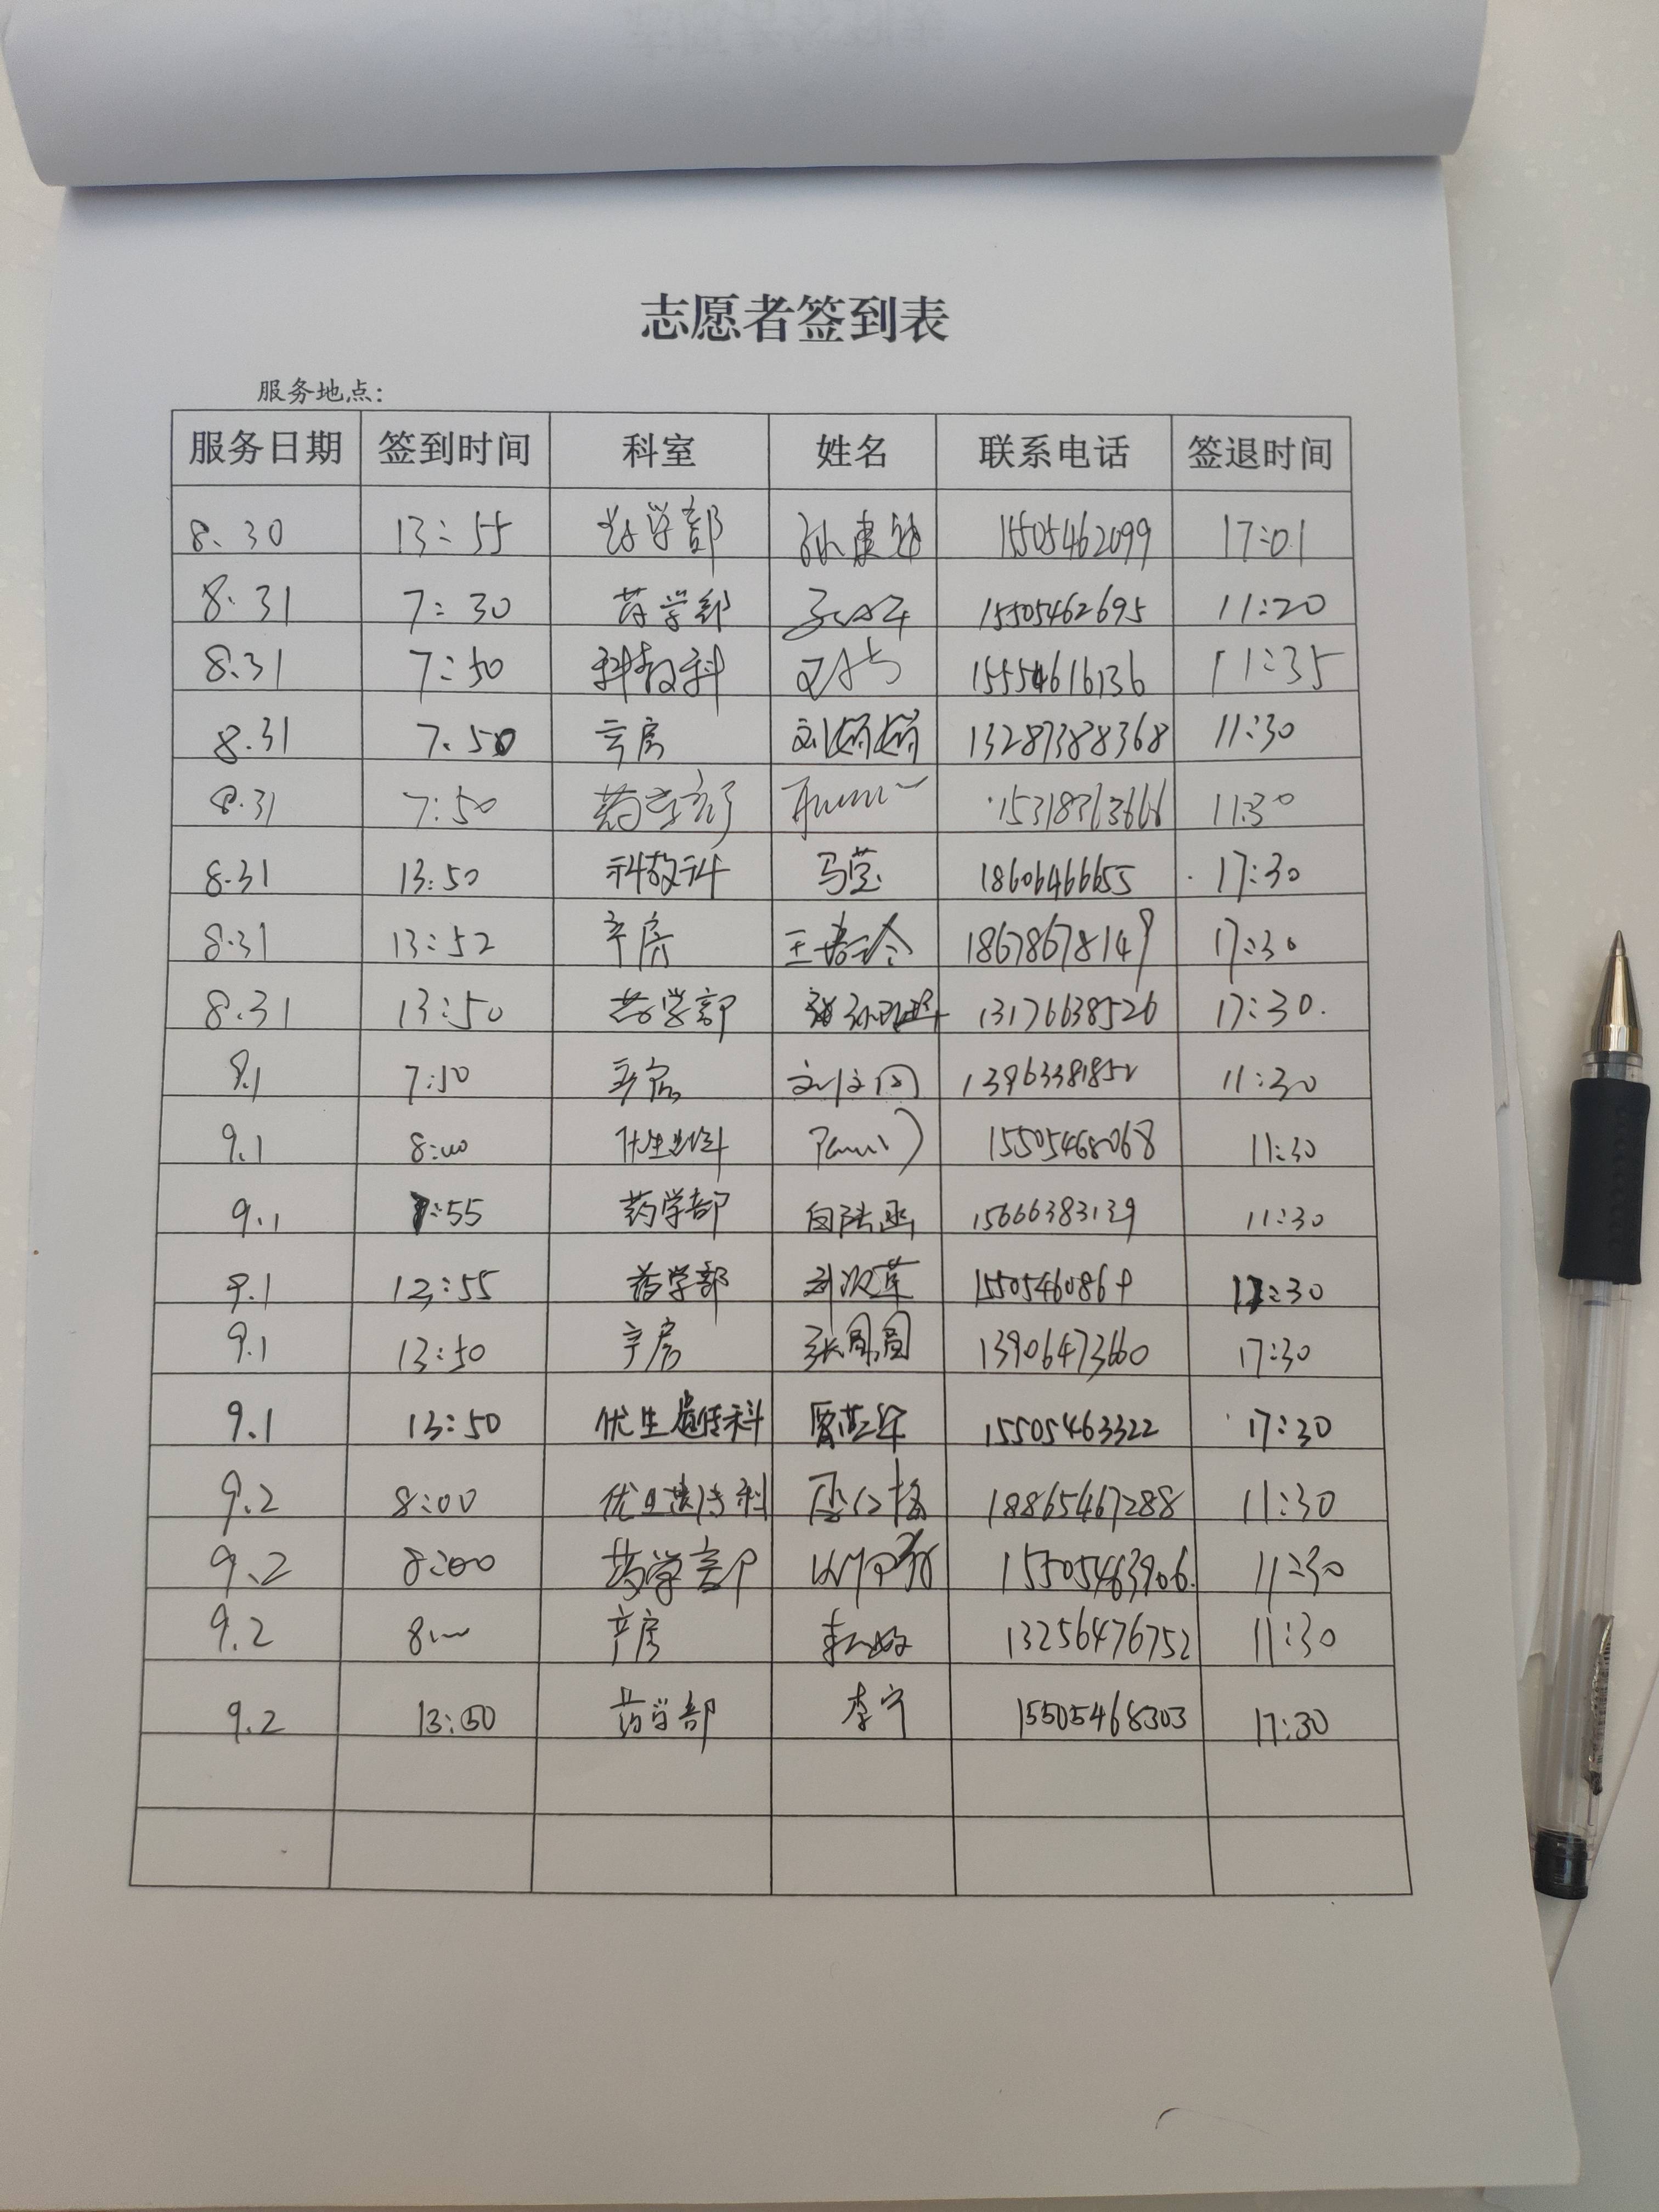 志愿者签到表
服务地点:
服务日期 签到时间 科室 姓名 联系电话 签退时间
8.30 13:55 药学部 15505462099 17:01
8.31 7:30 药学部 15505462695 11:20
8.31 7:50 科教科 15554616136 11:35
8.31 7.50 产房 刘娇娇 13287388368 11:30
8.31 7:50 药学部 15318363666 11:30
8.31 13:50 科教科 马莹 18606466655 17:30
8.31 13:52 产房 王 18678678149 17:30
8.31 13:50 药学部 13176638526 17:30.
9.1 7:50 产房 11:30
9.1 8:00 15505468068 11:30
9.1 7:55 药学部 15666383139 11:30
9.1 药学部 15505460869
9.1 13:50 产房 张圆圆 13906473660 17:30
9.1 13:50 优生遗传科 15505463322 17:30
9.2 8:00 优生遗传科 18865467288 11:30
9.2 8:00 药学部 15505463906 11:30
9.2 8:00 产房 13256476752 11:30
9.2 13:50 药学部 李宁 15505468303 17:30